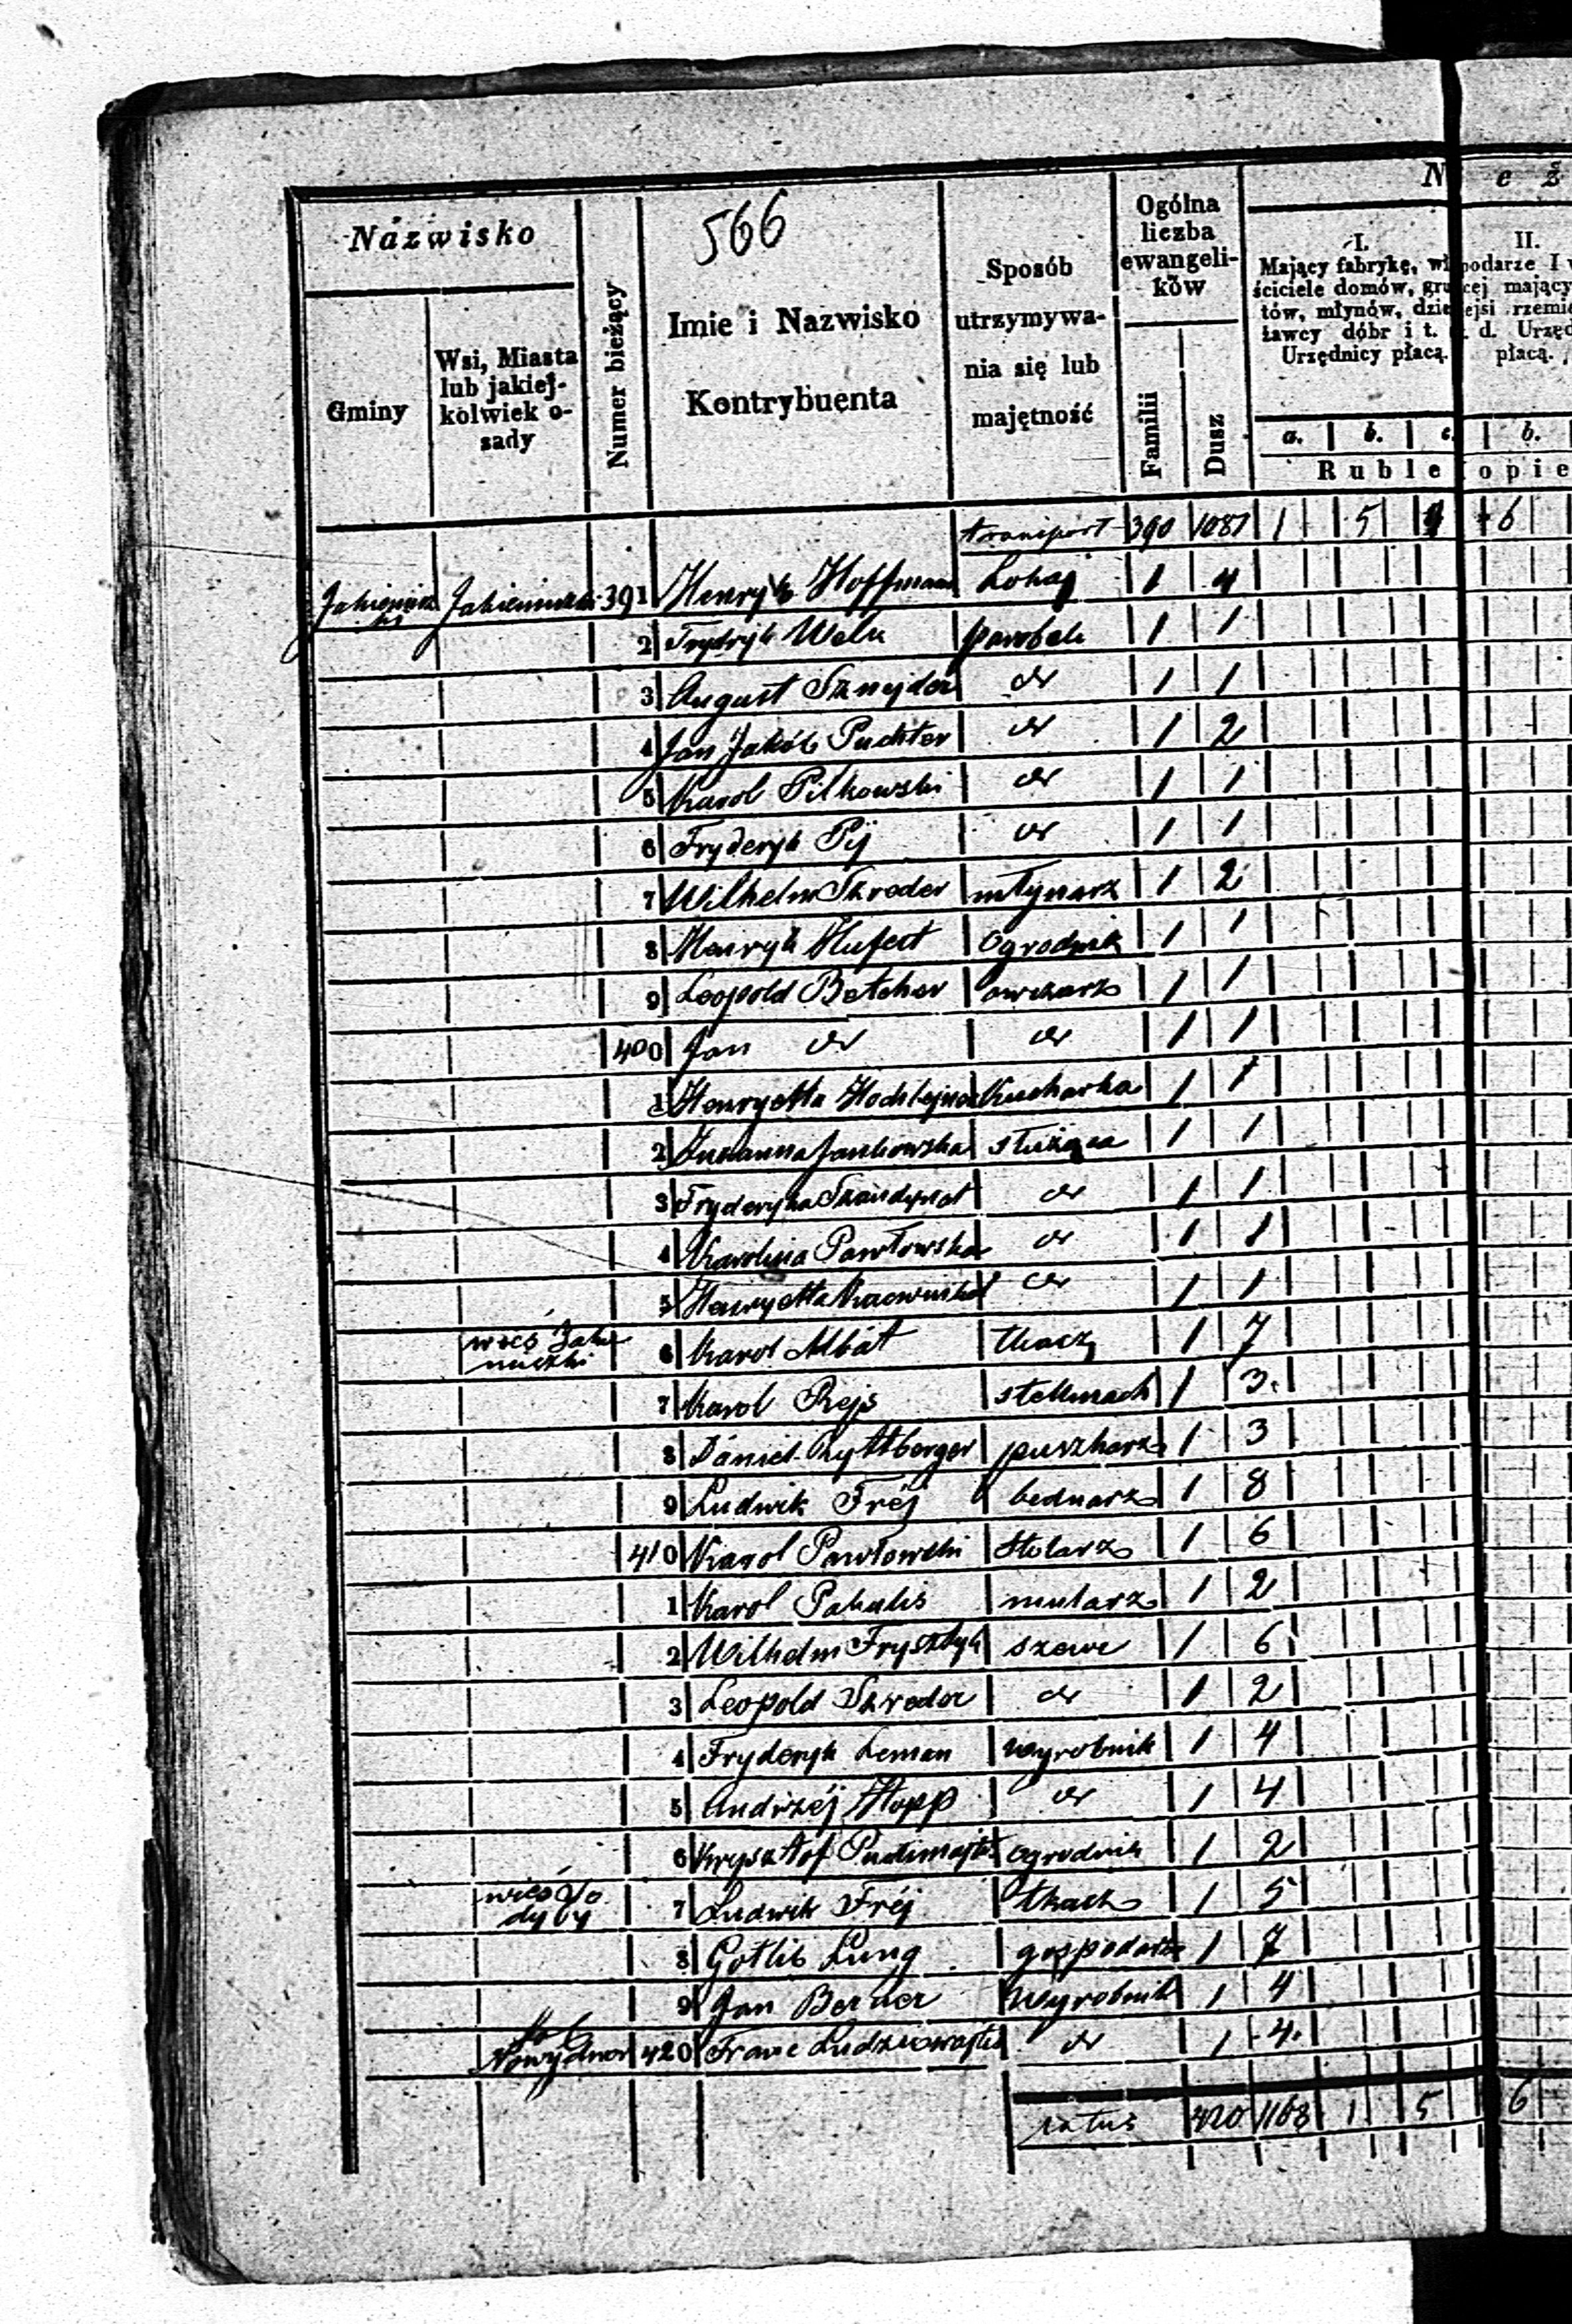 566
Názwisko
Gminy
Wsi, Miasta
lub jakiej-
kolwiek o-
sady
Numer bieżący
Imie i Nazwisko
Kontrybuenta
Sposób
utrzymywa-
nia się lub
majętność
Ogólna
liczba
ewangeli-
ków
Familii
Dusz
N e ż
I.
Mający fabrykę, wł
ściciele domów, gru
tów, młynów, dzie
ławcy dóbr i t. d.
Urzędnicy płacą.
II.
podarze I
cej mający
ejsi rzemie
Urzęd
płacą.
a. b. c. b.
Ruble opie
transport 390 1087 1 5 6
391 Henryk Hoffman Lokaj 1 4
2 Frydryk Welk parobek 1 1
3 August Sznejder dr 1 1
4 Jan Jakób Puchter dr 1 2
5 Karol Pilkowski dr 1 1
6 Fryderyk Pij dr 1 1
7 Wilhelm Szreder młynarz 1 2
8 Henryk Hufert Ogrodnik 1 1
9 Leopold Betcher owczarz 1 1
400 Jan dr dr 1 1
1 Henryetta Kucharka 1 1
2 Zuzanna Jankowska służąca 1 1
3 Fryderyka dr 1 1
4 Karolina Pawłowska dr 1 1
5 Henryetta dr 1 1
wieś 6 Karol Albat tkacz 1 7
7 Karol Rejs stellmach 1 3
8 Daniel Ryttberger puszkarz 1 3
9 Ludwik Fréj bednarz 1 8
410 Karol Pawłowski Stolarz 1 6
1 Karol Pakulis mularz 1 2
2 Wilhelm Frysztyk szewc 1 6
3 Leopold Szreder dr 1 2
4 Fryderyk Leman wyrobnik 1 4
5 Andrzéj Hopp dr 1 4
6 Krysztof Ogrodnik 1 2
wieś 7 Ludwik Fréj tkacz 1 5
8 Gotlib Lung gospodarz 1 7
9 Jan Berner Wyrobnik 1 4
Nowydwor 420 Franc dr 1 4
latus 420 1168 1 5 6